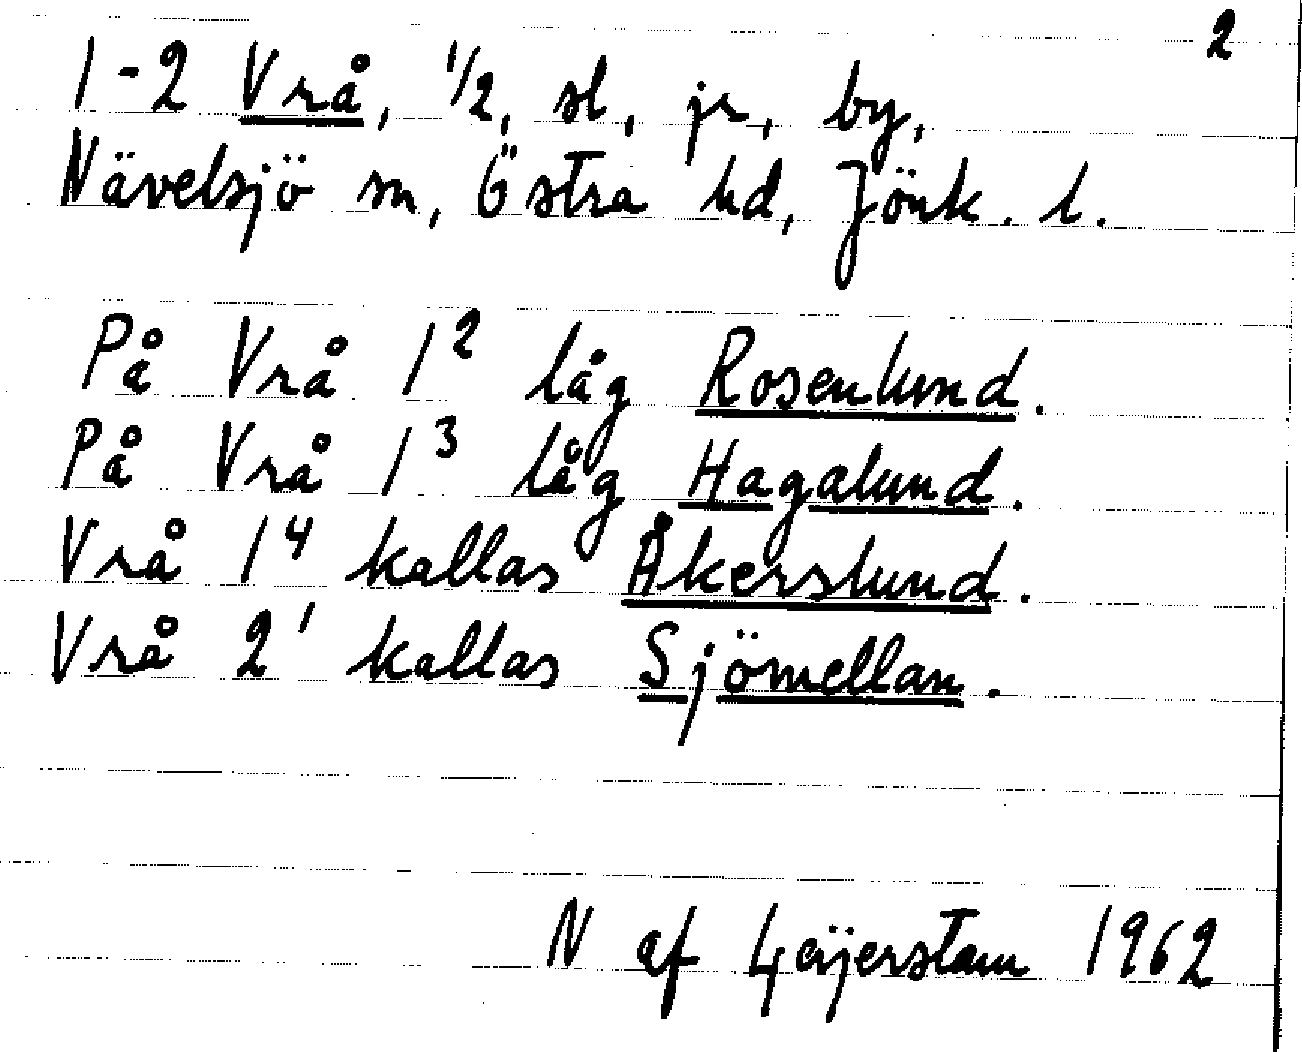 2
1-2 Vrå, 1/2, sl, jr, by,
Nävelsjö sn, Östra hd, Jönk. l.
På Vrå 1² låg Rosenlund.
På Vrå 1³ låg Hagalund.
Vrå 1⁴ kallas Åkerslund.
Vrå 2¹ kallas Sjömellan.
N af Geijerstam 1962